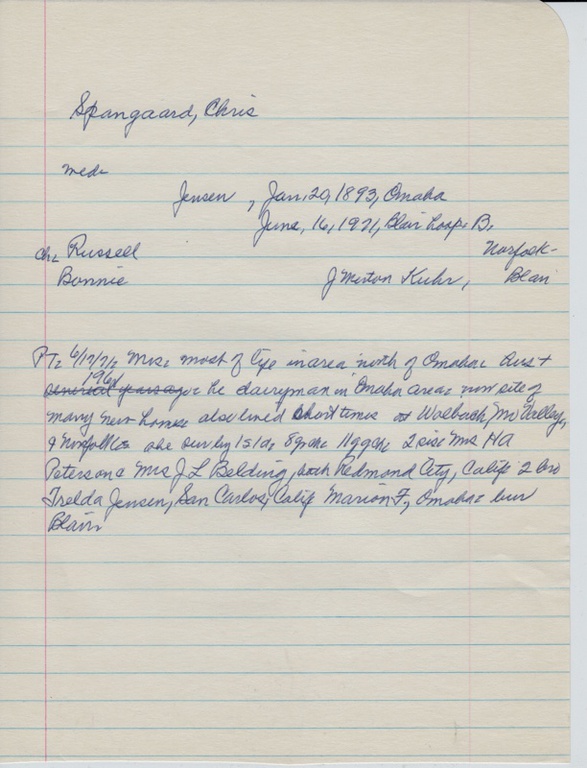 Spangaard, Chris
med.
Jensen, Jan. 20, 1893, Omaha
June, 16, 1971, Blair Hosp. B,
ch. Russell Norfolk-
Bonnie J Merton Kuhr, Blair
PT: 6/17/71: Mrs. most of life in area north of Omaha:
1964
he dairyman in Omaha area: now site of
many new homes also lived short times at Wolbach, Mo Valley,
& Norfolk: she sur by 1 s 1 d: 8 grch: 11 ggch: 2 sis: Mrs HA
Peterson & Mrs J L Belding, both Redmond City, Calif 2 bro
Trelda Jensen, San Carlos, Calif Marion F, Omaha: bur
Blair